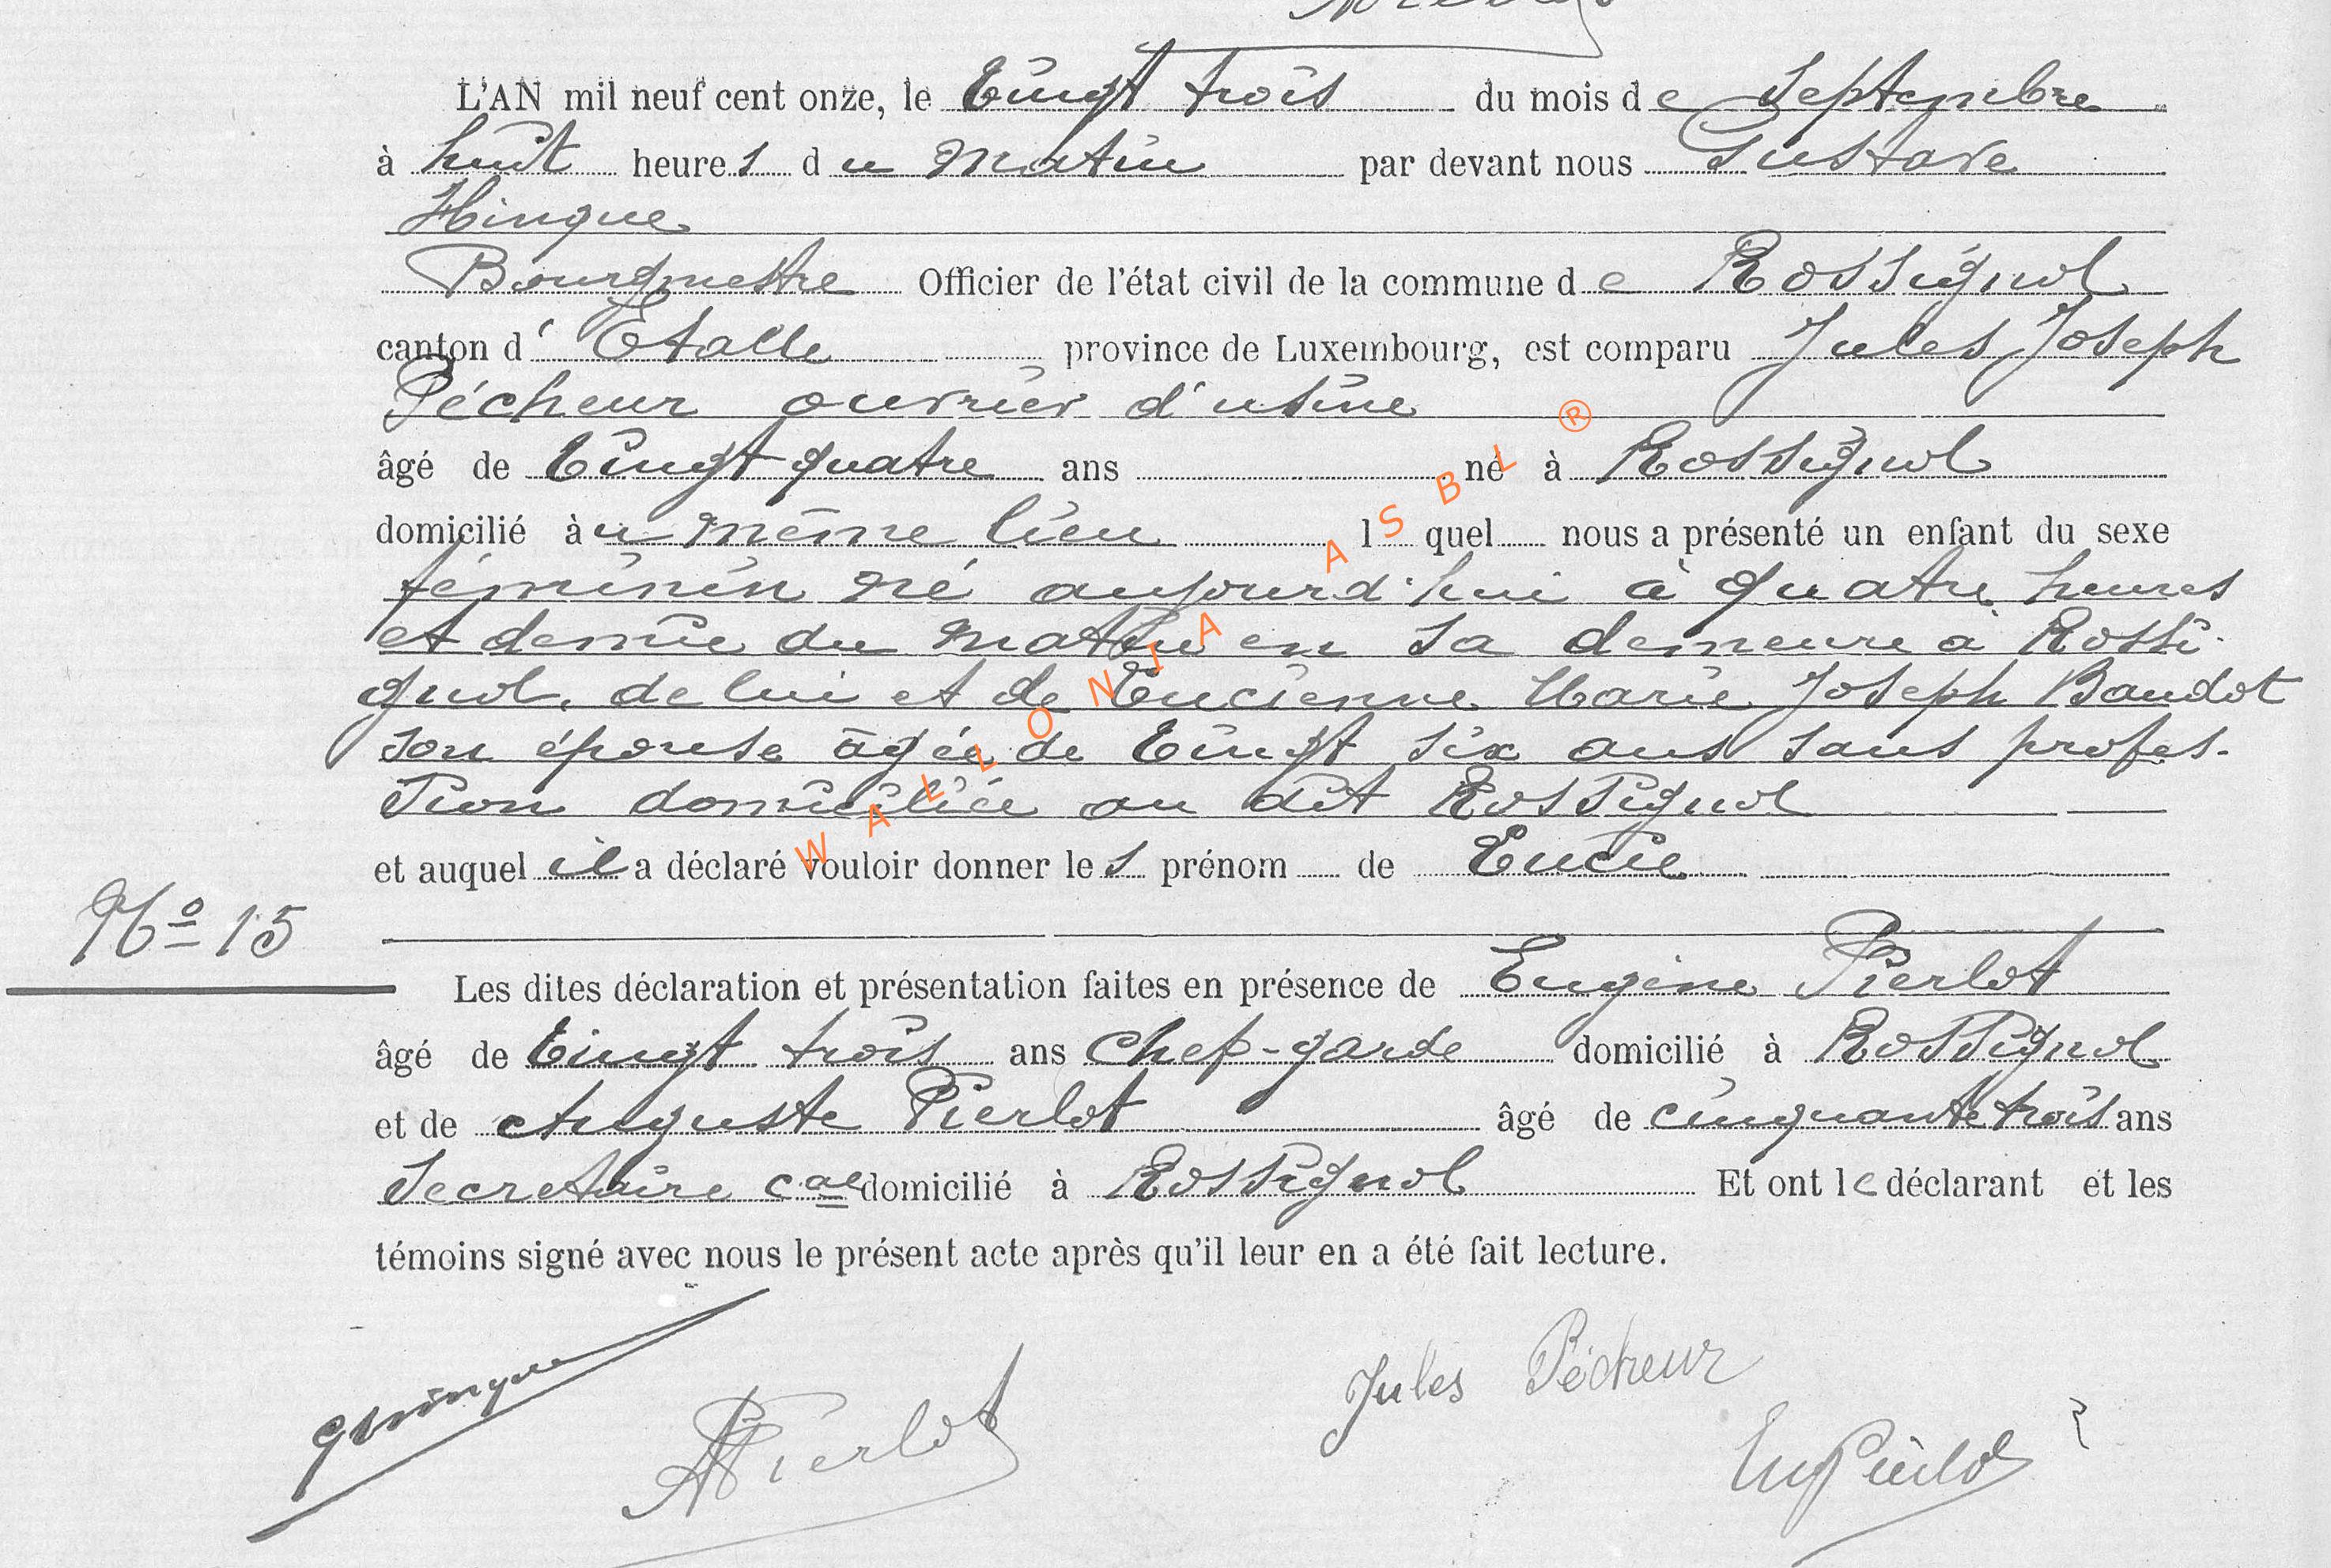 L'AN mil neuf cent onze, le Vingt trois du mois de Septembre
à huit heures du Matin par devant nous Gustave
Hinque
Bourgmestre Officier de l'état civil de la commune de Rossignol
canton d'Etalle province de Luxembourg, est comparu Jules Joseph
Pécheur ouvrier d'usine
âgé de Vingt quatre ans né à Rossignol
domicilié au même lieu l quel nous a présenté un enfant du sexe
féminin né aujourd'hui à quatre heures
et demie du matin en sa demeure à Rossi-
gnol, de lui et de Lucienne Marie Joseph Baudot
son épouse âgée de Vingt six ans sans profes-
sion domiciliée au dit Rossignol
et auquel il a déclaré vouloir donner les prénom de Lucie
No 15
Les dites déclaration et présentation faites en présence de Eugène Pierlot
âgé de Vingt trois ans Chef-garde domicilié à Rossignol
et de Auguste Pierlot âgé de cinquante trois ans
Secretaire cal domicilié à Rossignol Et ont le déclarant et les
témoins signé avec nous le présent acte après qu'il leur en a été fait lecture.
Jules Pécheur
GHinque
APierlot
EugPierlot
WALLONIA ASBL ®